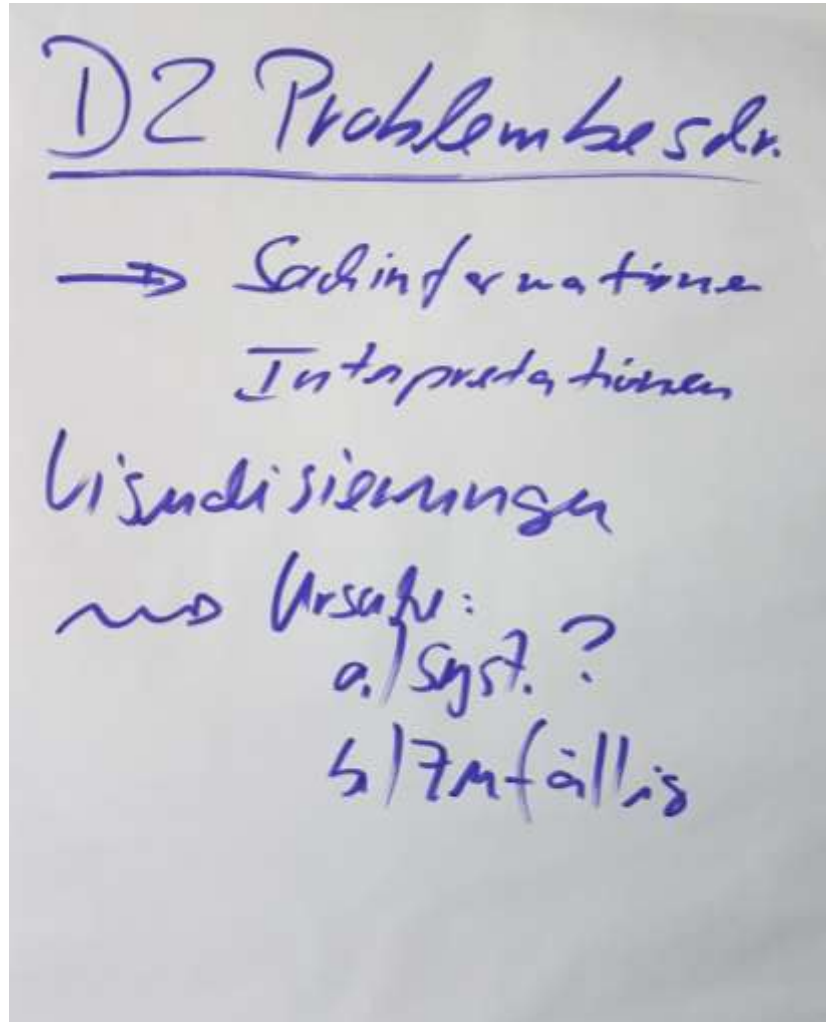 D2 Problembeschr.
→ Sachinformationen
Interpretationen
Visualisierungen
⇝ Ursache:
a.) syst. ?
b) zufällig